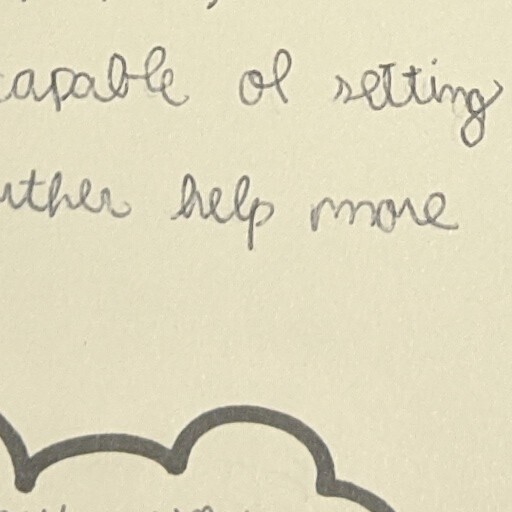 capable of setting
uther help more